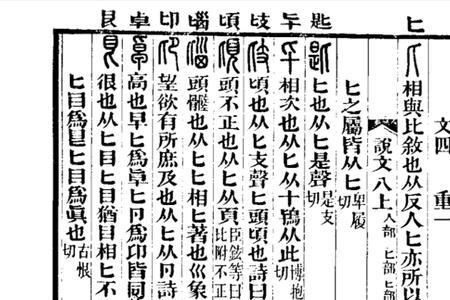 文四 重一
匕 相與比敘也从反人匕亦所以
說文八上 人部 匕部 𠤎部
匕之屬皆从匕 卑履切
匙 匕也从匕是聲 是支切
𠤏 相次也从匕从十鴇从此 博抱切
𠤗 頃也从匕支聲匕頭頃也詩曰
頃 頭不正也从匕从頁 臣鉉等曰 比附不正
匘 頭髓也从匕匕相匕著也巛象
卬 望欲有所庶及也从匕从卪詩
卓 高也早匕爲𠦝匕卪爲卬皆同
艮 很也从匕目匕目猶目相匕不
匕目爲𥃩𠤎目爲眞也 古恨切